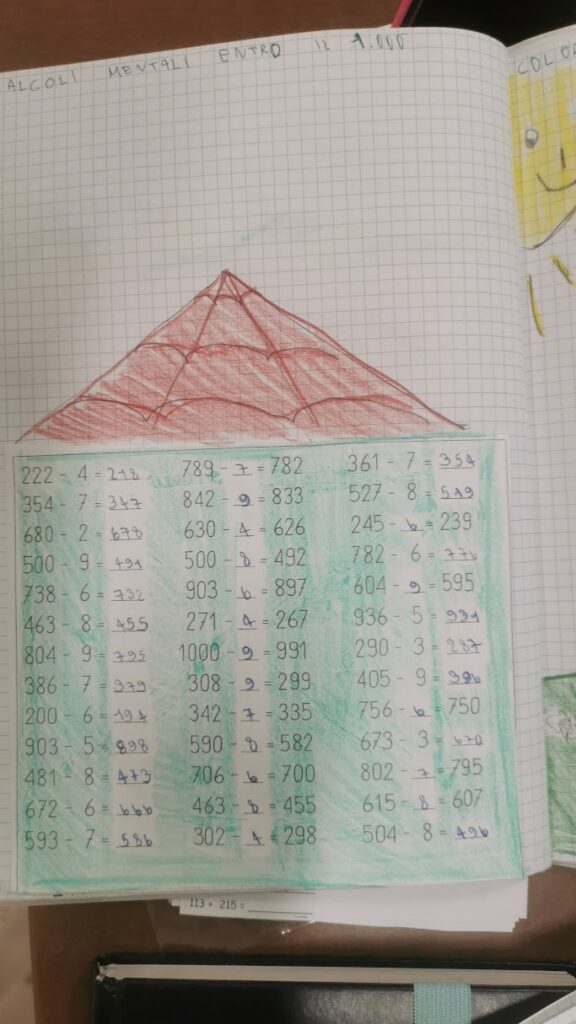 ALCOLI MENTALI ENTRO IL 1.000
222 - 4 = 218 789 - 7 = 782 361 - 7 = 354
354 - 7 = 347 842 - 9 = 833 527 - 8 = 519
680 - 2 = 678 630 - 4 = 626 245 - 6 = 239
500 - 9 = 491 500 - 8 = 492 782 - 6 = 776
738 - 6 = 732 903 - 6 = 897 604 - 9 = 595
463 - 8 = 455 271 - 4 = 267 936 - 5 = 931
804 - 9 = 795 1000 - 9 = 991 290 - 3 = 287
386 - 7 = 379 308 - 9 = 299 405 - 9 = 396
200 - 6 = 194 342 - 7 = 335 756 - 6 = 750
903 - 5 = 898 590 - 8 = 582 673 - 3 = 670
481 - 8 = 473 706 - 6 = 700 802 - 7 = 795
672 - 6 = 666 463 - 8 = 455 615 - 8 = 607
593 - 7 = 586 302 - 4 = 298 504 - 8 = 496
113 + 215 =